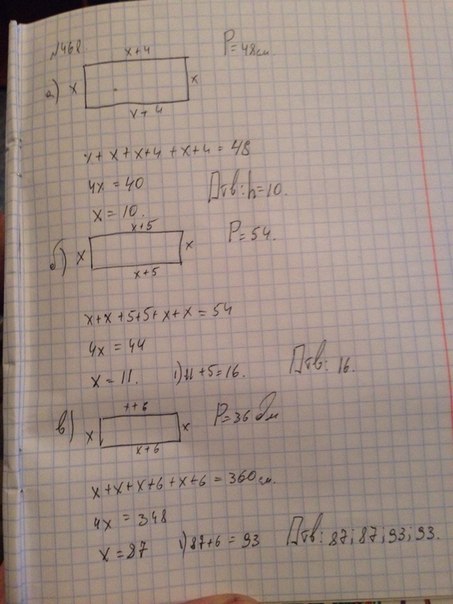 №468. x+4 P=48см
а) x x
x+4
x+x+x+4+x+4=48
4x=40
x=10. Отв: h=10.
x+5
б) x x P=54.
x+5
x+x+5+5+x+x=54
4x=44
x=11. 1) 11+5=16. Отв: 16.
x+6
в) x x P=36дм
x+6
x+x+x+6+x+6=360см.
4x=348
x=87 1) 87+6=93 Отв: 87; 87; 93; 93.